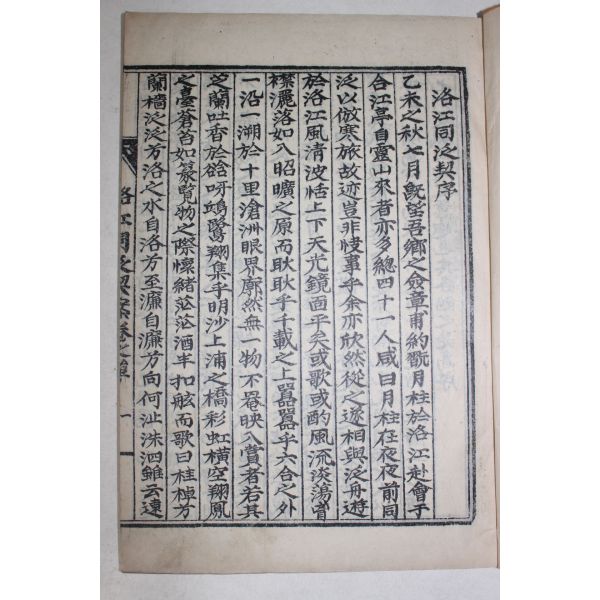 洛江同泛契序
乙未之秋七月旣望吾鄉之僉章甫約翫月柱於洛江赴會于
合江亭自靈山來者亦多總四十一人咸曰月柱在夜夜前同
泛以倣寒旅故迹豈非㤼事乎余亦欣然從之遂相與泛舟遊
於洛江風淸波恬上下天光鏡面平矣或歌或酌風流淡蕩胷
襟灑落如入昭曠之原而耿耿乎千載之上囂囂乎六合之外
一沿一溯於十里滄洲眼界廓然無一物不罨映入賞者若其
芝蘭吐香於谽呀鴻鷺翔集乎明沙上浦之橋彩虹橫空翔鳳
之臺蒼苔如篆覽物之際懷緖茫茫酒半扣舷而歌曰桂棹方
蘭檣泛泛方洛之水自洛方至濂自濂方向何沚洙泗雖云遠
洛江同泛契案卷之單 一